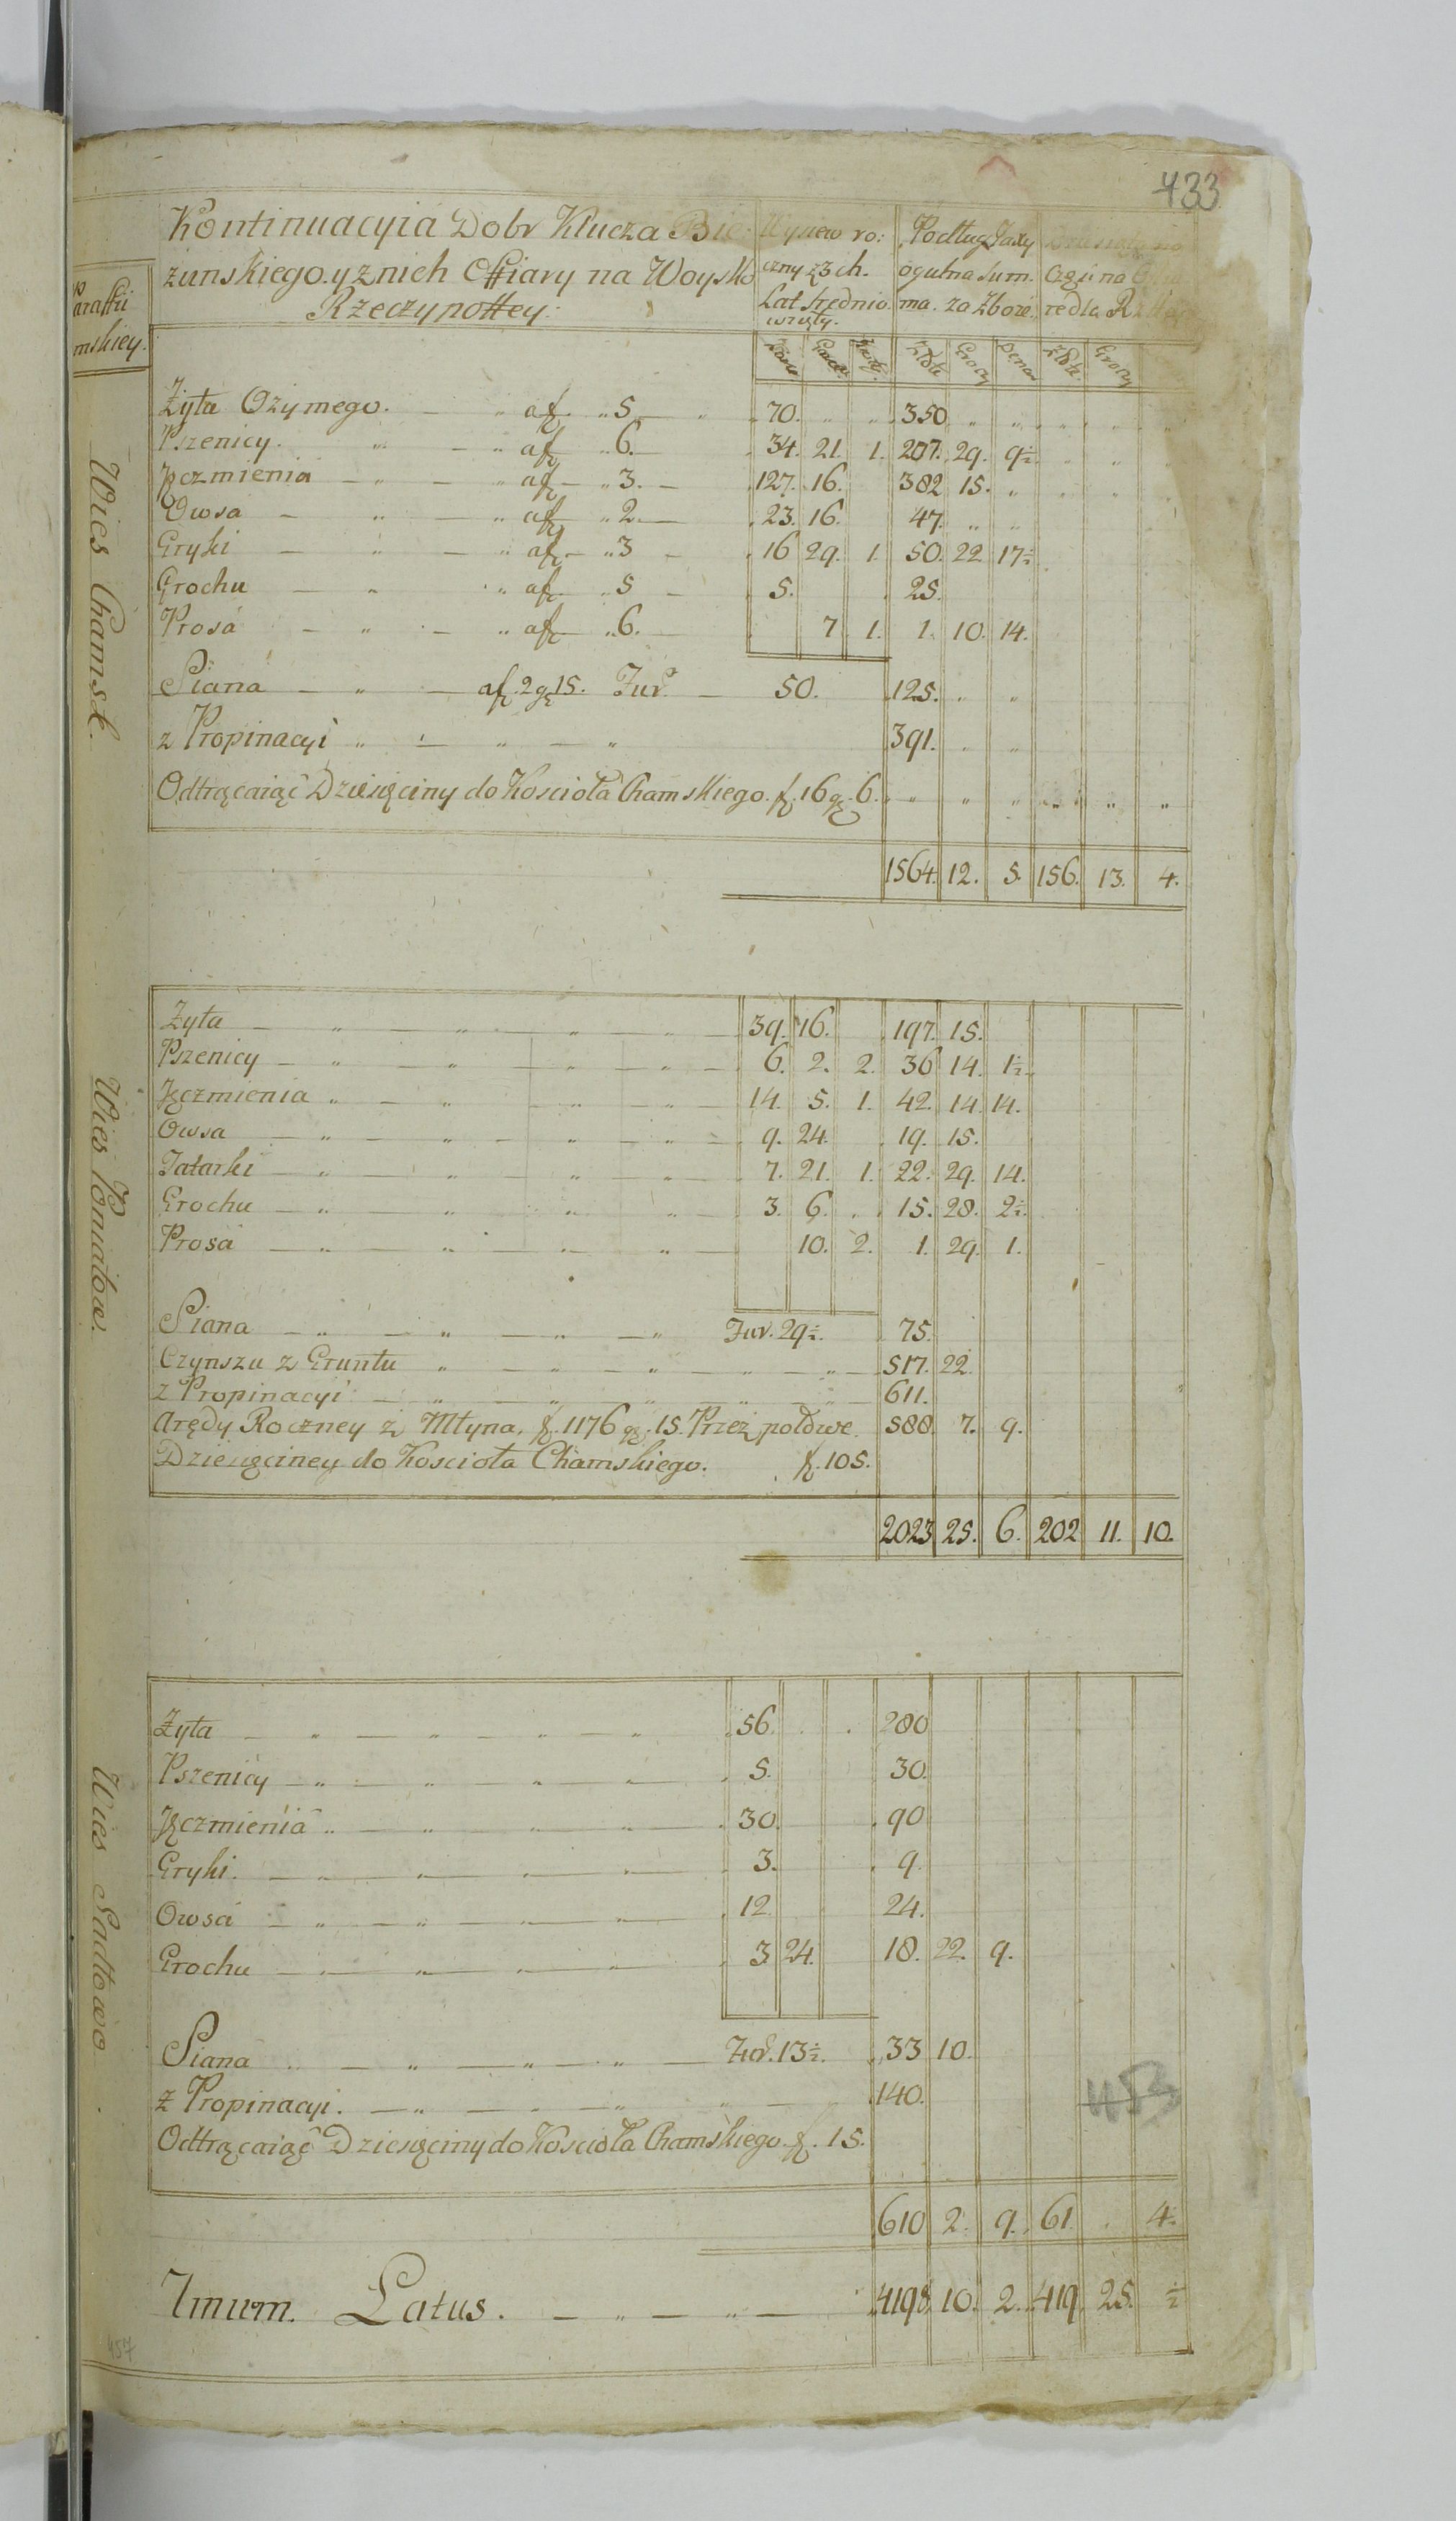 433
Kontinuacyia Dobr Klucza Bie:
żunskiego. y z nich Offiary na Woysko
Rzeczypottey.
Wysiew ro:
czny z 3ch.
Lat srednio
wzięty.
Podług Taxy
ogulna Sum.
ma. za Zboże.
czę na
re dla
Złote Groszy Złote. Groszy
araffii
mskiey.
Wies Chamsk.
Żyta Ozymego. — " af. " 5 — " 70. " " 350 " "
Pszenicy. " — " af " 6. — 34. 21. 1. 207. 29. 9½
Jęczmienia — " — " af — " 3. — 127. 16. 382 15. "
Owsa — " — " af " 2. — 23. 16. 47. " "
Gryki — " — " af — " 3 — 16 29. 1. 50. 22 17½
Grochu — " " af — " 5 — 5. 25.
Prosa — " — " af — " 6. — 7. 1. 1. 10. 14.
Siana — " — af. 2 gr 15. Fur. — 50. 125. " "
z Propinacyi " — " — " 391. " "
Odtrącaiąc Dziesięciny do Koscioła Chamskiego. f. 16 gr. 6. " " " " " "
1564. 12. 5. 156. 13. 4.
Wies Poniatow.
Żyta — " — " — " " — 39. 16. 197. 15.
Pszenicy — " — " — " — " — 6. 2. 2. 36 14. 1½
Jęczmienia " — " — " — " — 14. 5. 1. 42. 14. 14.
Owsa — " — " — " — " — 9. 24. 19. 15.
Tatarki — " — " — " — " — 7. 21. 1. 22. 29. 14.
Grochu — " — " — " — " — 3. 6. 15. 28. 2½
Prosa — " — " — " — " — 10. 2. 1. 29. 1.
Siana — " — " — " — " Fur. 29½. 75.
Czynszu z Gruntu " — " — " — " — 517. 22.
z Propinacyi — " — " — " — 611.
Arędy Roczney z Młyna, f. 1176 gr. 15. Przez połowe. 588. 7. 9.
Dziesięciney do Koscioła Chamskiego. f. 105.
2023 25. 6. 202 11. 10.
Wies Sadłowo.
Żyta — " — " — " — " 56. 280
Pszenicy — " — " — " — " 5. 30.
Jęczmienia " — " — " — " — 30. 90
Gryki. — " — " — " — " — 3. 9.
Owsa — " — " — " — " — 12 24.
Grochu — " — " — " — " — 3 24. 18. 22. 9.
Siana " — " — " — " — Fur. 13½. 33 10.
z Propinacyi. — " — " — " — 140.
453
Odtrącaiąc Dziesięciny do Koscioła Chamskiego. f. 15.
610 2. 9. 61. 4½
Imum. Latus. — " — " — 4198. 10. 2. 419. 25. ½
457